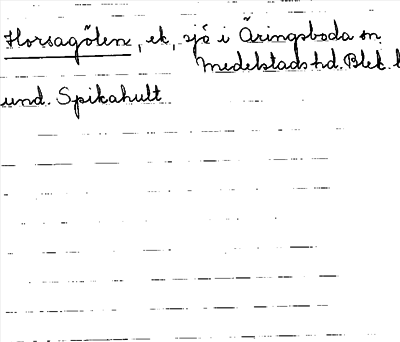 Horsagölen, ek, sjö i Äringsboda sn
Medelstads hd. Blek. l
und. Spikahult